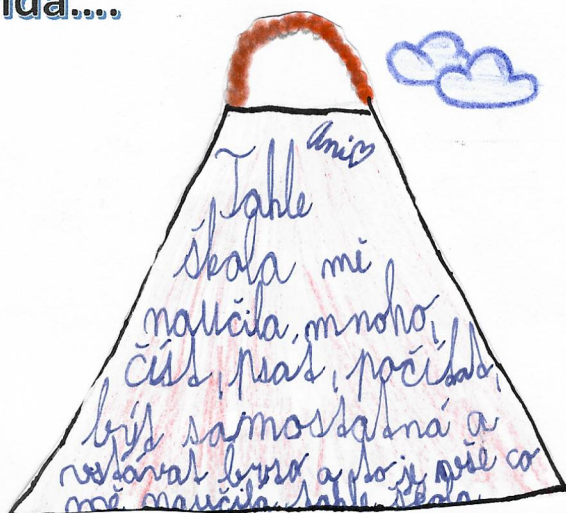 ida....
Ani
Tahle
škola mě
naučila, mnoho,
číst, psat, počítat,
být samostatná a
vstávat brzo a to je vše co
mě naučila tahle škola